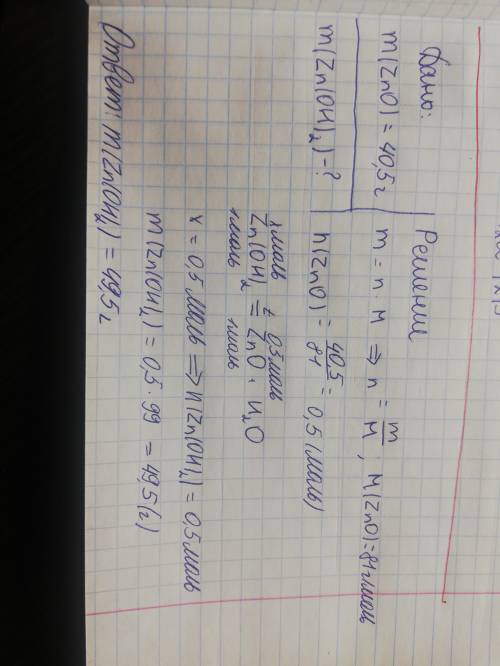 Дано:
m(ZnO) = 40,5 г
m(Zn(OH)₂) - ?
Решение
m = n · M ⇒ n = m/M ; M(ZnO) = 81 г/моль
n(ZnO) = 40,5/81 = 0,5 (моль)
x моль 0,5 моль
Zn(OH)₂ =t ZnO + H₂O
1 моль 1 моль
x = 0,5 моль ⇒ n(Zn(OH)₂) = 0,5 моль
m(Zn(OH)₂) = 0,5 · 99 = 49,5 (г)
Ответ: m(Zn(OH)₂) = 49,5 г